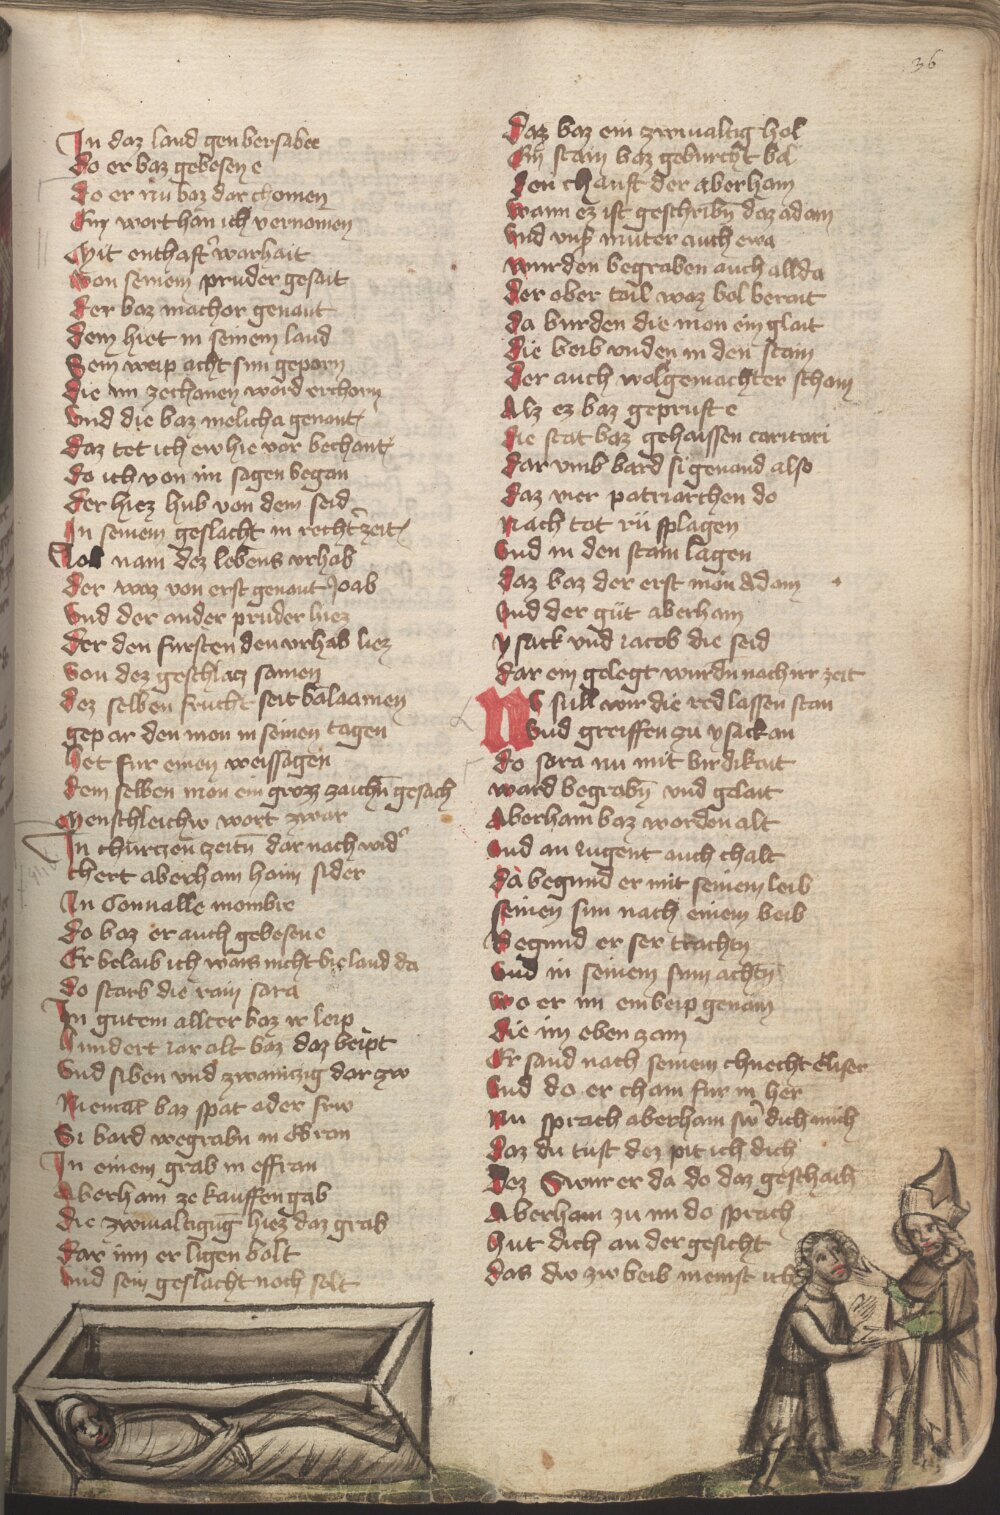 36
In daz land gen bersabee
do er baz gebesen e
do er nu baz dar chomen
Ein wort han ich vernomen
Mit enthafter warhait
von seinem pruder gesait
der baz nachor genant
dem hiet in seinem land
Sein weip acht sun geporn
die im ze chonen word erchorn
vnd die baz melicha genant
daz tet ich ew hie vor bechant
do ich von im sagen began
der hiez hub von dem seid
In seinem geslacht in rechter zeit
Job nam dez lebens vrhab
der waz von erst genant Joab
vnd der ander pruder hiez
der den fursten den vrhab liez
von dez geschlacz samen
dez selben frucht seit balaamen
gepar den mon in seinen tagen
het fur einen weissagen
dem selben mon ein grozz zaichn gesach
Menschleichew wort zwar
In churczen zeitn dar nach wider
chert aberham haim sider
In Conualle mombre
do baz er auch gebesen e
Er belaib ich wais nicht bie land da
do starb die rain sara
In gutem allter baz ir leip
hundert iar alt baz daz beipt
vnd siben vnd zwainczig dar zw
Niemal baz spat oder frw
Si bard wegrabn in Ebron
In einem grab in effran
Aberham ze kauffen gab
die zwiualtigung hiez daz grab
dar inn er ligen bolt
vnd sein geslacht noch solt
daz baz ein zwiualtig hol
Ein stain baz geburcht bol
den chauft der aberham
wann ez ist geschribn daz adam
vnd vnser muter auch ewa
wurden begraben auch allda
der ober tail waz bol berait
da burden die mon ein glait
die beib vnden in den stain
der auch wolgemachter schain
Alz ez baz gepruft e
die stat baz gehaissen caritari
dar vmb bard si genand also
daz vier patriarchen do
nach tot ru splagen
vnd in den stain lagen
daz baz der erst mon Adam
vnd der gut aberham
ysack vnd iacob die seid
dar ein gelegt wurdn nach irr zeit
NV sull wir die red lassen stan
vnd greiffen zu ysack an
do sara nu mit birdikait
ward begrabn vnd gelait
Aberham baz worden alt
vnd an tugent auch chalt
da begund er mit seinem leib
seinen sun nach einem beib
Begund er ser trachtn
vnd in seinem sinn achtn
wo er im ein beip genam
die im eben zam
Er sand nach seinem chnecht Eliser
vnd do er cham fur in her
Nu sprach aberham swer dich mich
daz du tust dez pit ich dich
Dez Swur er da do daz geschach
Aberham zu im do sprach
hut dich an der gesicht
das dw zw beib niemst icht